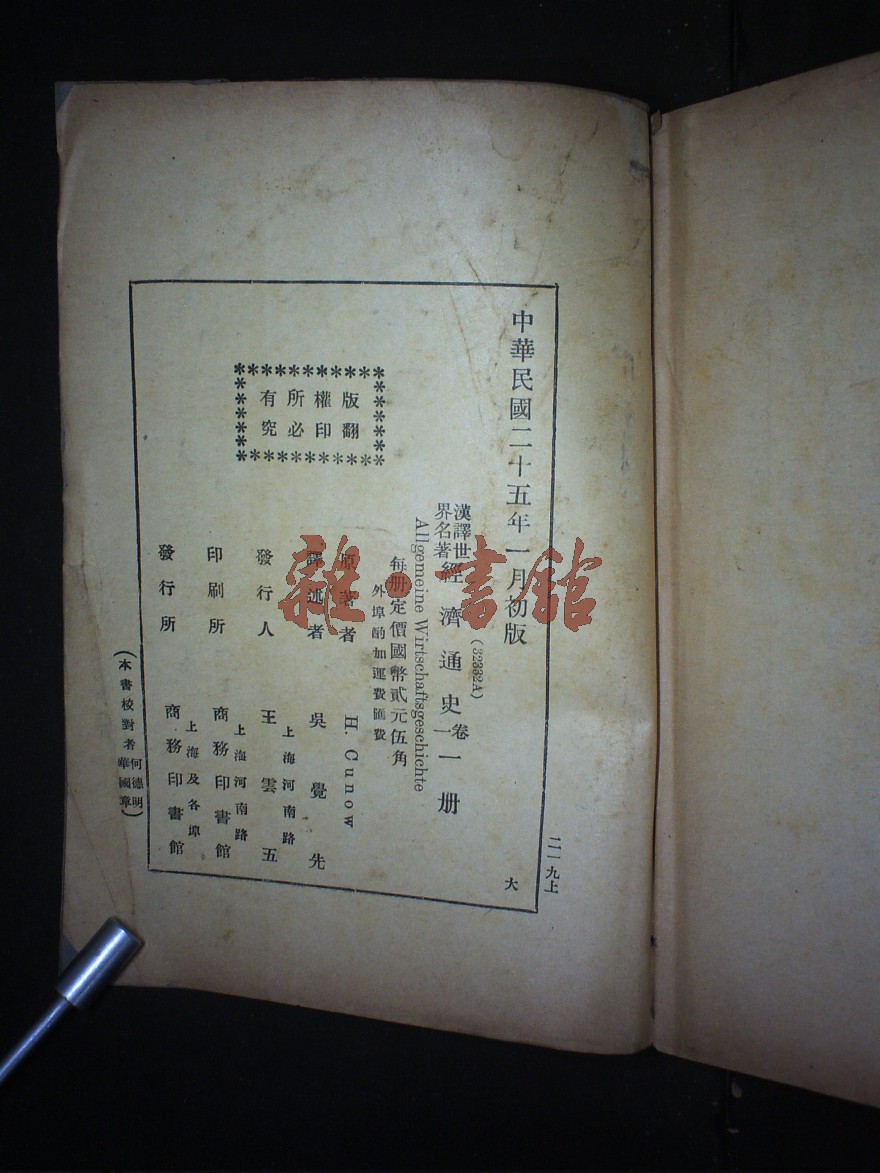 中華民國二十五年一月初版
(32332A)
漢譯世界名著 經濟通史 卷一 一冊
Allgemeine Wirtschaftsgeschichte
每冊定價國幣貳元伍角
外埠酌加運費匯費
原著者 H. Cunow
譯述者 吳覺先
發行人 王雲五
上海河南路
印刷所 商務印書館
上海河南路
發行所 商務印書館
上海及各埠
版權所有
翻印必究
(本書校對者 何德明 華國章)
二一九上
大
雜·書館